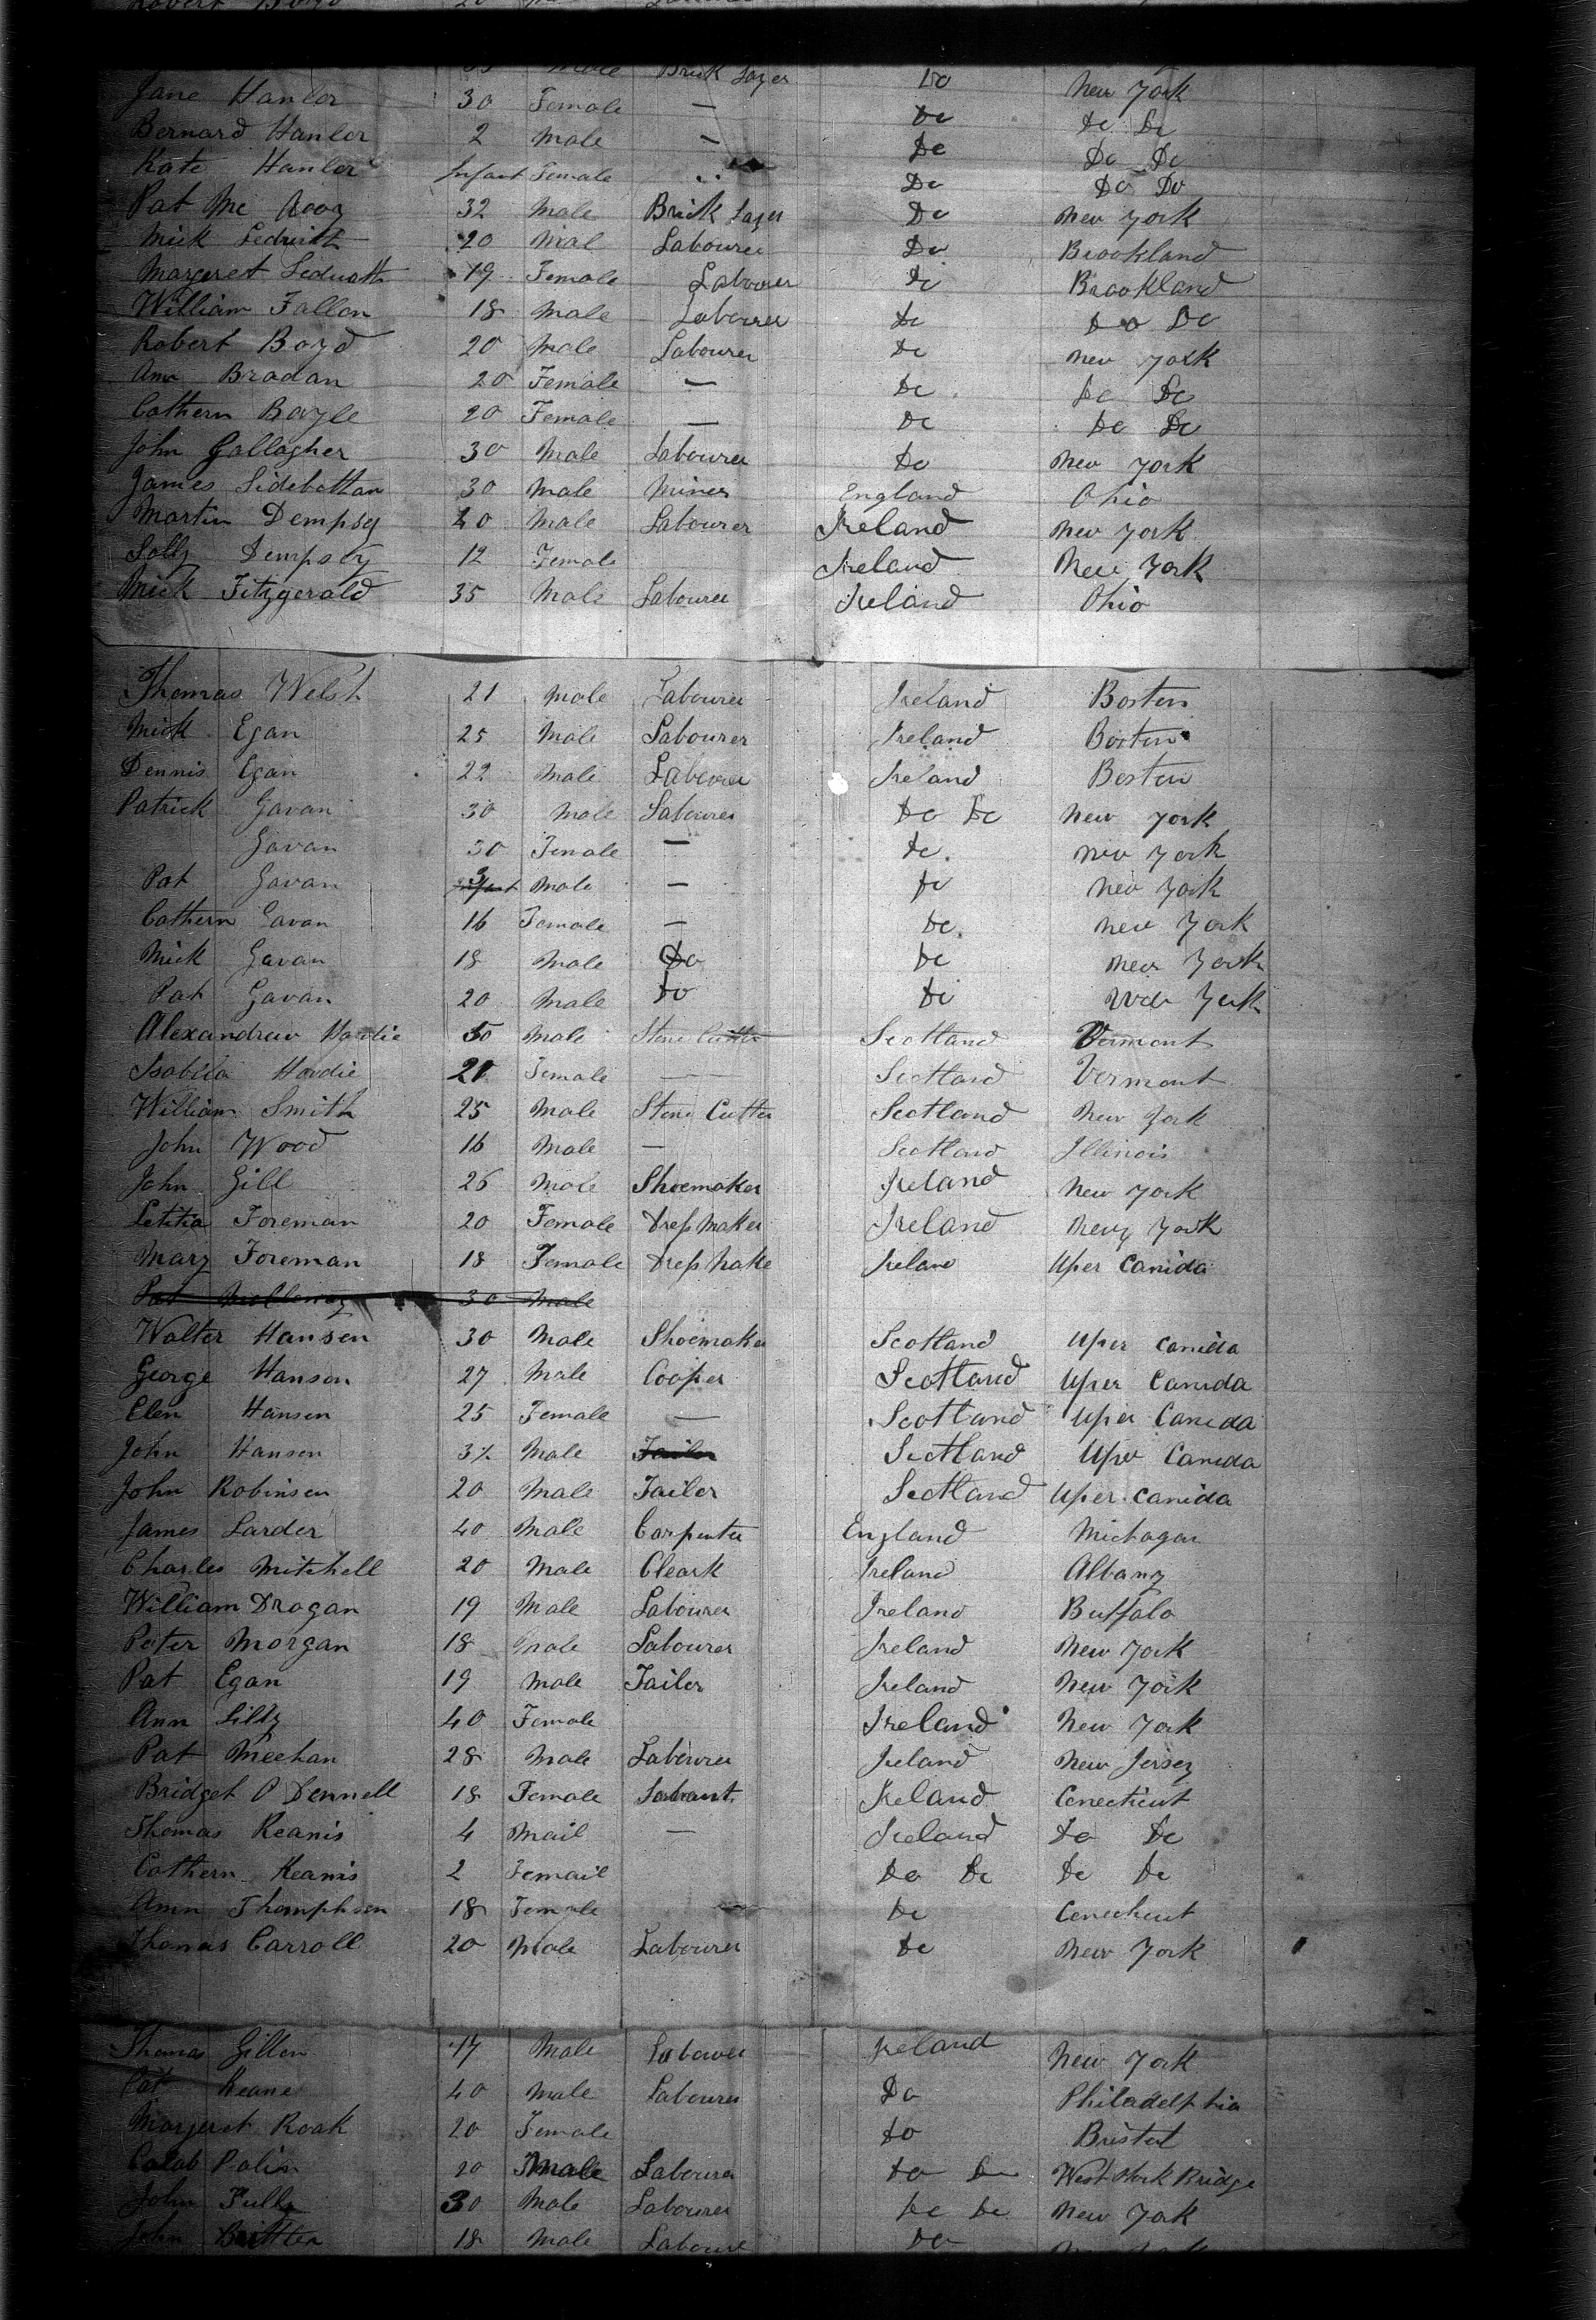 Robert Boyd 20
Male Brick Layer Do New York
Jane Hanlor 30 Female — Do Do Do
Bernard Hanlor 2 Male — Do Do Do
Kate Hanlor Infant Female " Do Do Do
Pat Mc 32 Male Brick Layer Do New York
Mick Leduith 20 Mal Labourer Do Brookland
Margeret Leduith 19 Female Labourer Do Brookland
William Fallon 18 Male Labourer Do Do Do
Robert Boyd 20 Male Labourer Do New York
Ann Bradan 20 Female — Do Do Do
Cathern Boyle 20 Female — Do Do Do
John Gallagher 30 Male Labourer Do New York
James Sidebottam 30 Male Miner England Ohio
Martin Dempsy 40 Male Labourer Ireland New York
Dempsy 12 Female Ireland New York
Mick Fitzgerald 35 Male Labourer Ireland Ohio
Thomas Welsh 21 Male Labourer Ireland Boston
Mick Egan 25 Male Labourer Ireland Boston
Dennis Egan 22 Male Labourer Ireland Boston
Patrick Gavan 30 Male Labourer Do Do New York
Gavan 30 Female — Do. New York
Pat Gavan 3 Male — Do New York
Cathern Gavan 16 Female — Do. New York
Mick Gavan 18 Male Do Do New York
Pat Gavan 20 Male Do Do New York
Alexandrew Hardie 50 Male Stone Cutter Scotland Vermont
Isabela Hardie 21 Female — Scotland Vermont
William Smith 25 Male Stone Cutter Scotland New York
John Wood 16 Male — Scotland Illinois
John Gill 26 Male Shoemaker Ireland New York
Letitia Foreman 20 Female Dress Maker Ireland New York
Mary Foreman 18 Female Dress Make Ireland Uper Canida
Pat 30 Male
Walter Hansen 30 Male Shoemaker Scotland Uper Canida
George Hanson 27 Male Cooper Scotland Uper Canida
Elen Hansen 25 Female — Scotland Uper Canida
John Hanson 3½ Male Tailor Scotland Uper Canida
John Robinson 20 Male Tailor Scotland Uper Canida
James Larder 40 Male Carpenter England Michagan
Charles Mitchell 20 Male Cleark Ireland Albany
William Drogan 19 Male Labourer Ireland Buffalo
Peter Morgan 18 Male Labourer Ireland New York
Pat Egan 19 Male Tailor Ireland New York
Ann Lilly 40 Female Ireland New York
Pat Meehan 28 Male Labourer Ireland New Jersey
Bridget O Donnell 18 Female Sarvant Ireland Conecticut
Thomas Keanis 4 Mail — Ireland Do Do
Cathern Keanis 2 Femail Do Do Do Do
Ann Thomphson 18 Female — Do Conecticut
Thomas Carroll 20 Male Labourer Do New York
Thomas Gillon 17 Male Labourer Ireland New York
Pat Keane 40 Male Labourer Do Philadelphia
Margeret Roak 20 Female Do Bristol
Calab Palin 20 Male Labourer Do Do West Stock Bridge
John Tully 30 Male Labourer Do Do New York
John Britton 18 Male Laboure Do